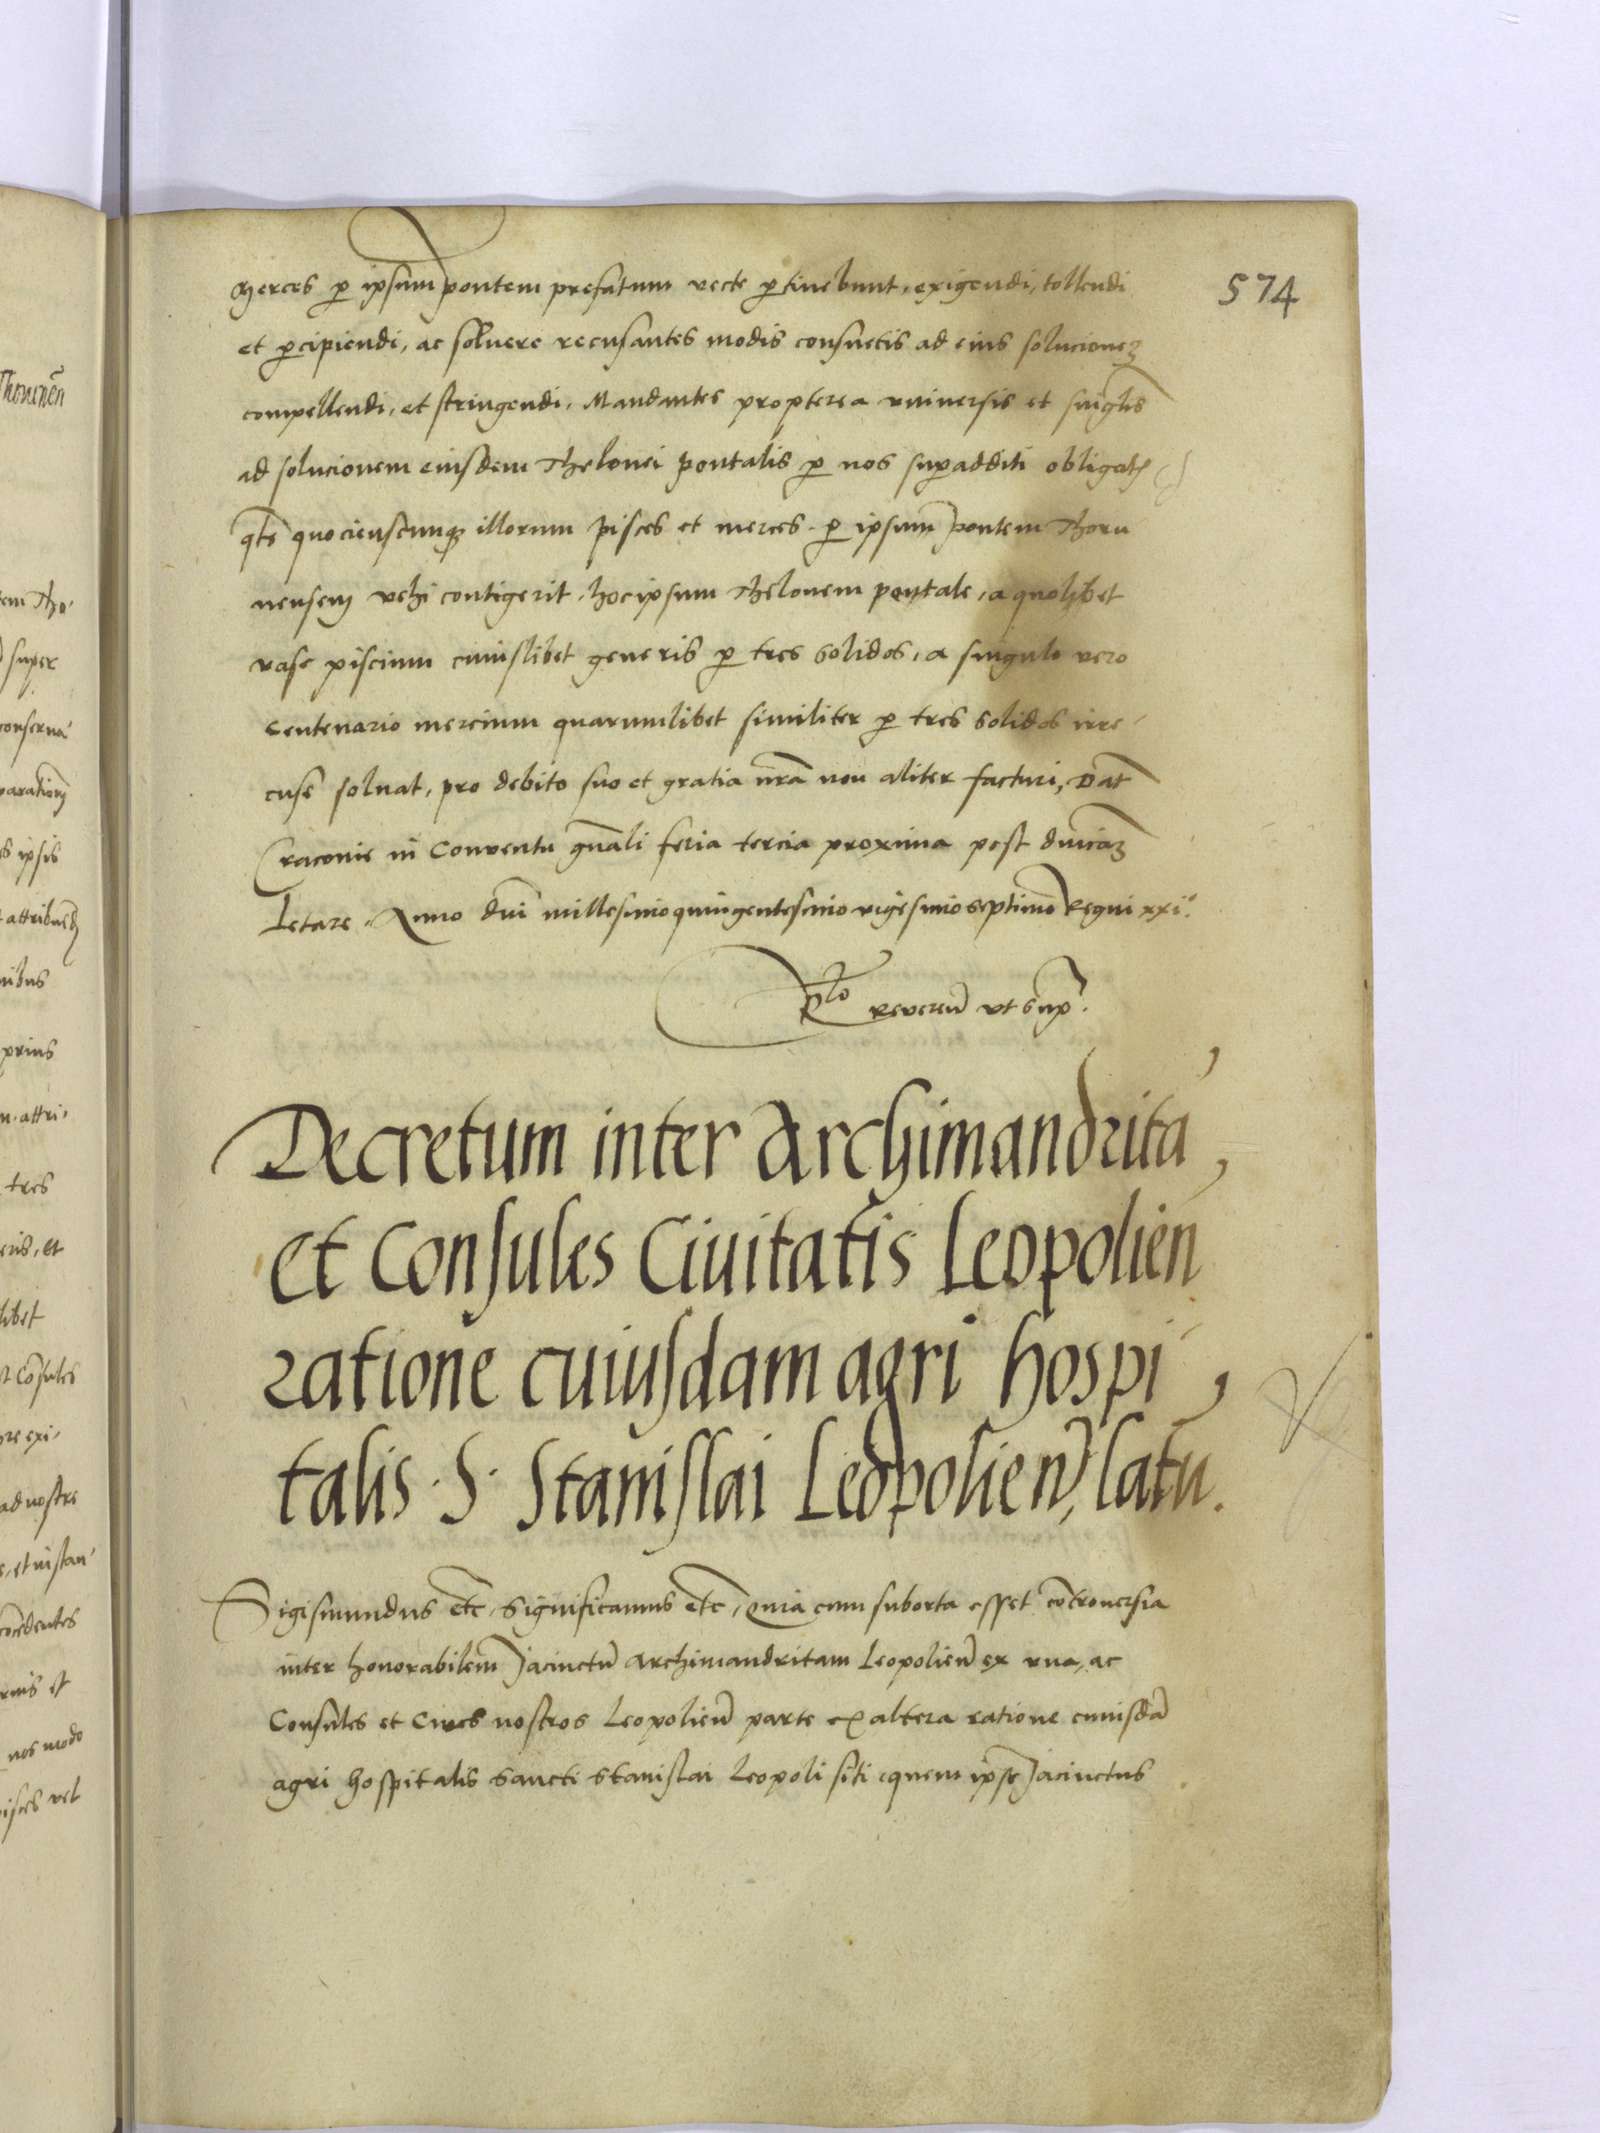 574
merces p ipsum pontem prefatum recte ptinebunt, exigendi, tollendi
et pcipiendi, ac soluere recusantes modis consuetis ad eius solucionez
compellendi, et stringendi, Mandantes propterea vniuersis et singlis
ad solucionem eiusdem Thelonei pontalis p nos supadditi obligat
qts quocienscunq illorum pisces et merces p ipsum pontem Thoru
nensem vehi contigerit, hoc ipsum Theloneum pontale, a quolibet
vase piscium cuiuslibet generis p tres solidos, a singulo vero
centenario mercium quarumlibet similiter p tres solidos irre-
cuse soluat, pro debito suo et gratia nra non aliter facturi, Dat
Cracouie in Conventu gnali feria tercia proxima post dnicaz
Letare Anno dni millesimoquingentesimo vigesimoseptimo Regni xxi°
Rlo Reveren vt sup.
Decretum inter Archimandrita
et Consules Ciuitatis Leopolien
ratione cuiusdam agri hospi
talis S Stanislai Leopolien, latu.
Sigismundus etc Significamus etc, Quia cum suborta esset cotrouersia
inter honorabilem Jacinctu Archimandritam Leopolien ex vna, ac
Consules et Ciues nostros Leopolien parte ex altera ratione cuiusda
agri hospitalis sancti Stanislai Leopoli siti quem ipse Jacinctus
Thonunen
tem Tho-
super
conserua-
parationem
s ipsis
nibus
prius
n attri-
tres
eris, et
libet
t Cosules
re exi-
ad nostre
, et instan-
cocedentes
nos modo
pisces vel